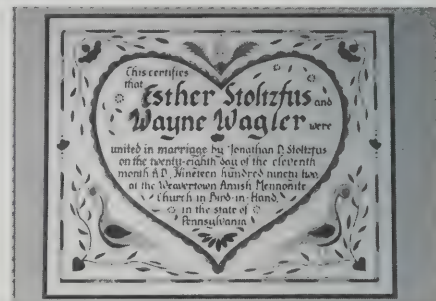 This certifies
that Esther Stoltzfus and
Wayne Wagler were
united in marriage by Jonathan D. Stoltzfus
on the twenty-eighth day of the eleventh
month A.D. Nineteen hundred ninety two
at the Weavertown Amish Mennonite
Church in Bird-in-Hand,
in the state of
Pennsylvania